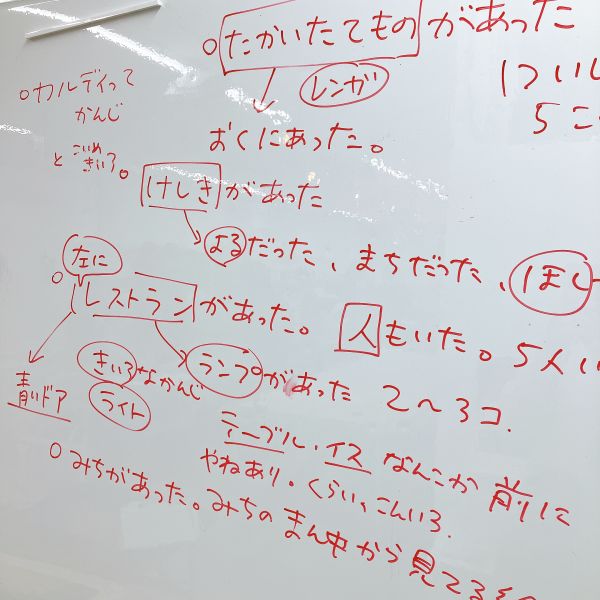 ○たかいたてものがあった
レンガ
1つい
5こ
おくにあった。
○カルディって
かんじ
と こいめ
きいろ。
けしきがあった
よるだった、まちだった、ほし
左に
○レストランがあった。 人もいた。5人い
きいろなかんじ ランプがあった 2〜3コ.
青いドア ライト
テーブル・イス なんこか 前に
やねあり。くらい、こんいろ.
○みちがあった。みちのまん中から見てる